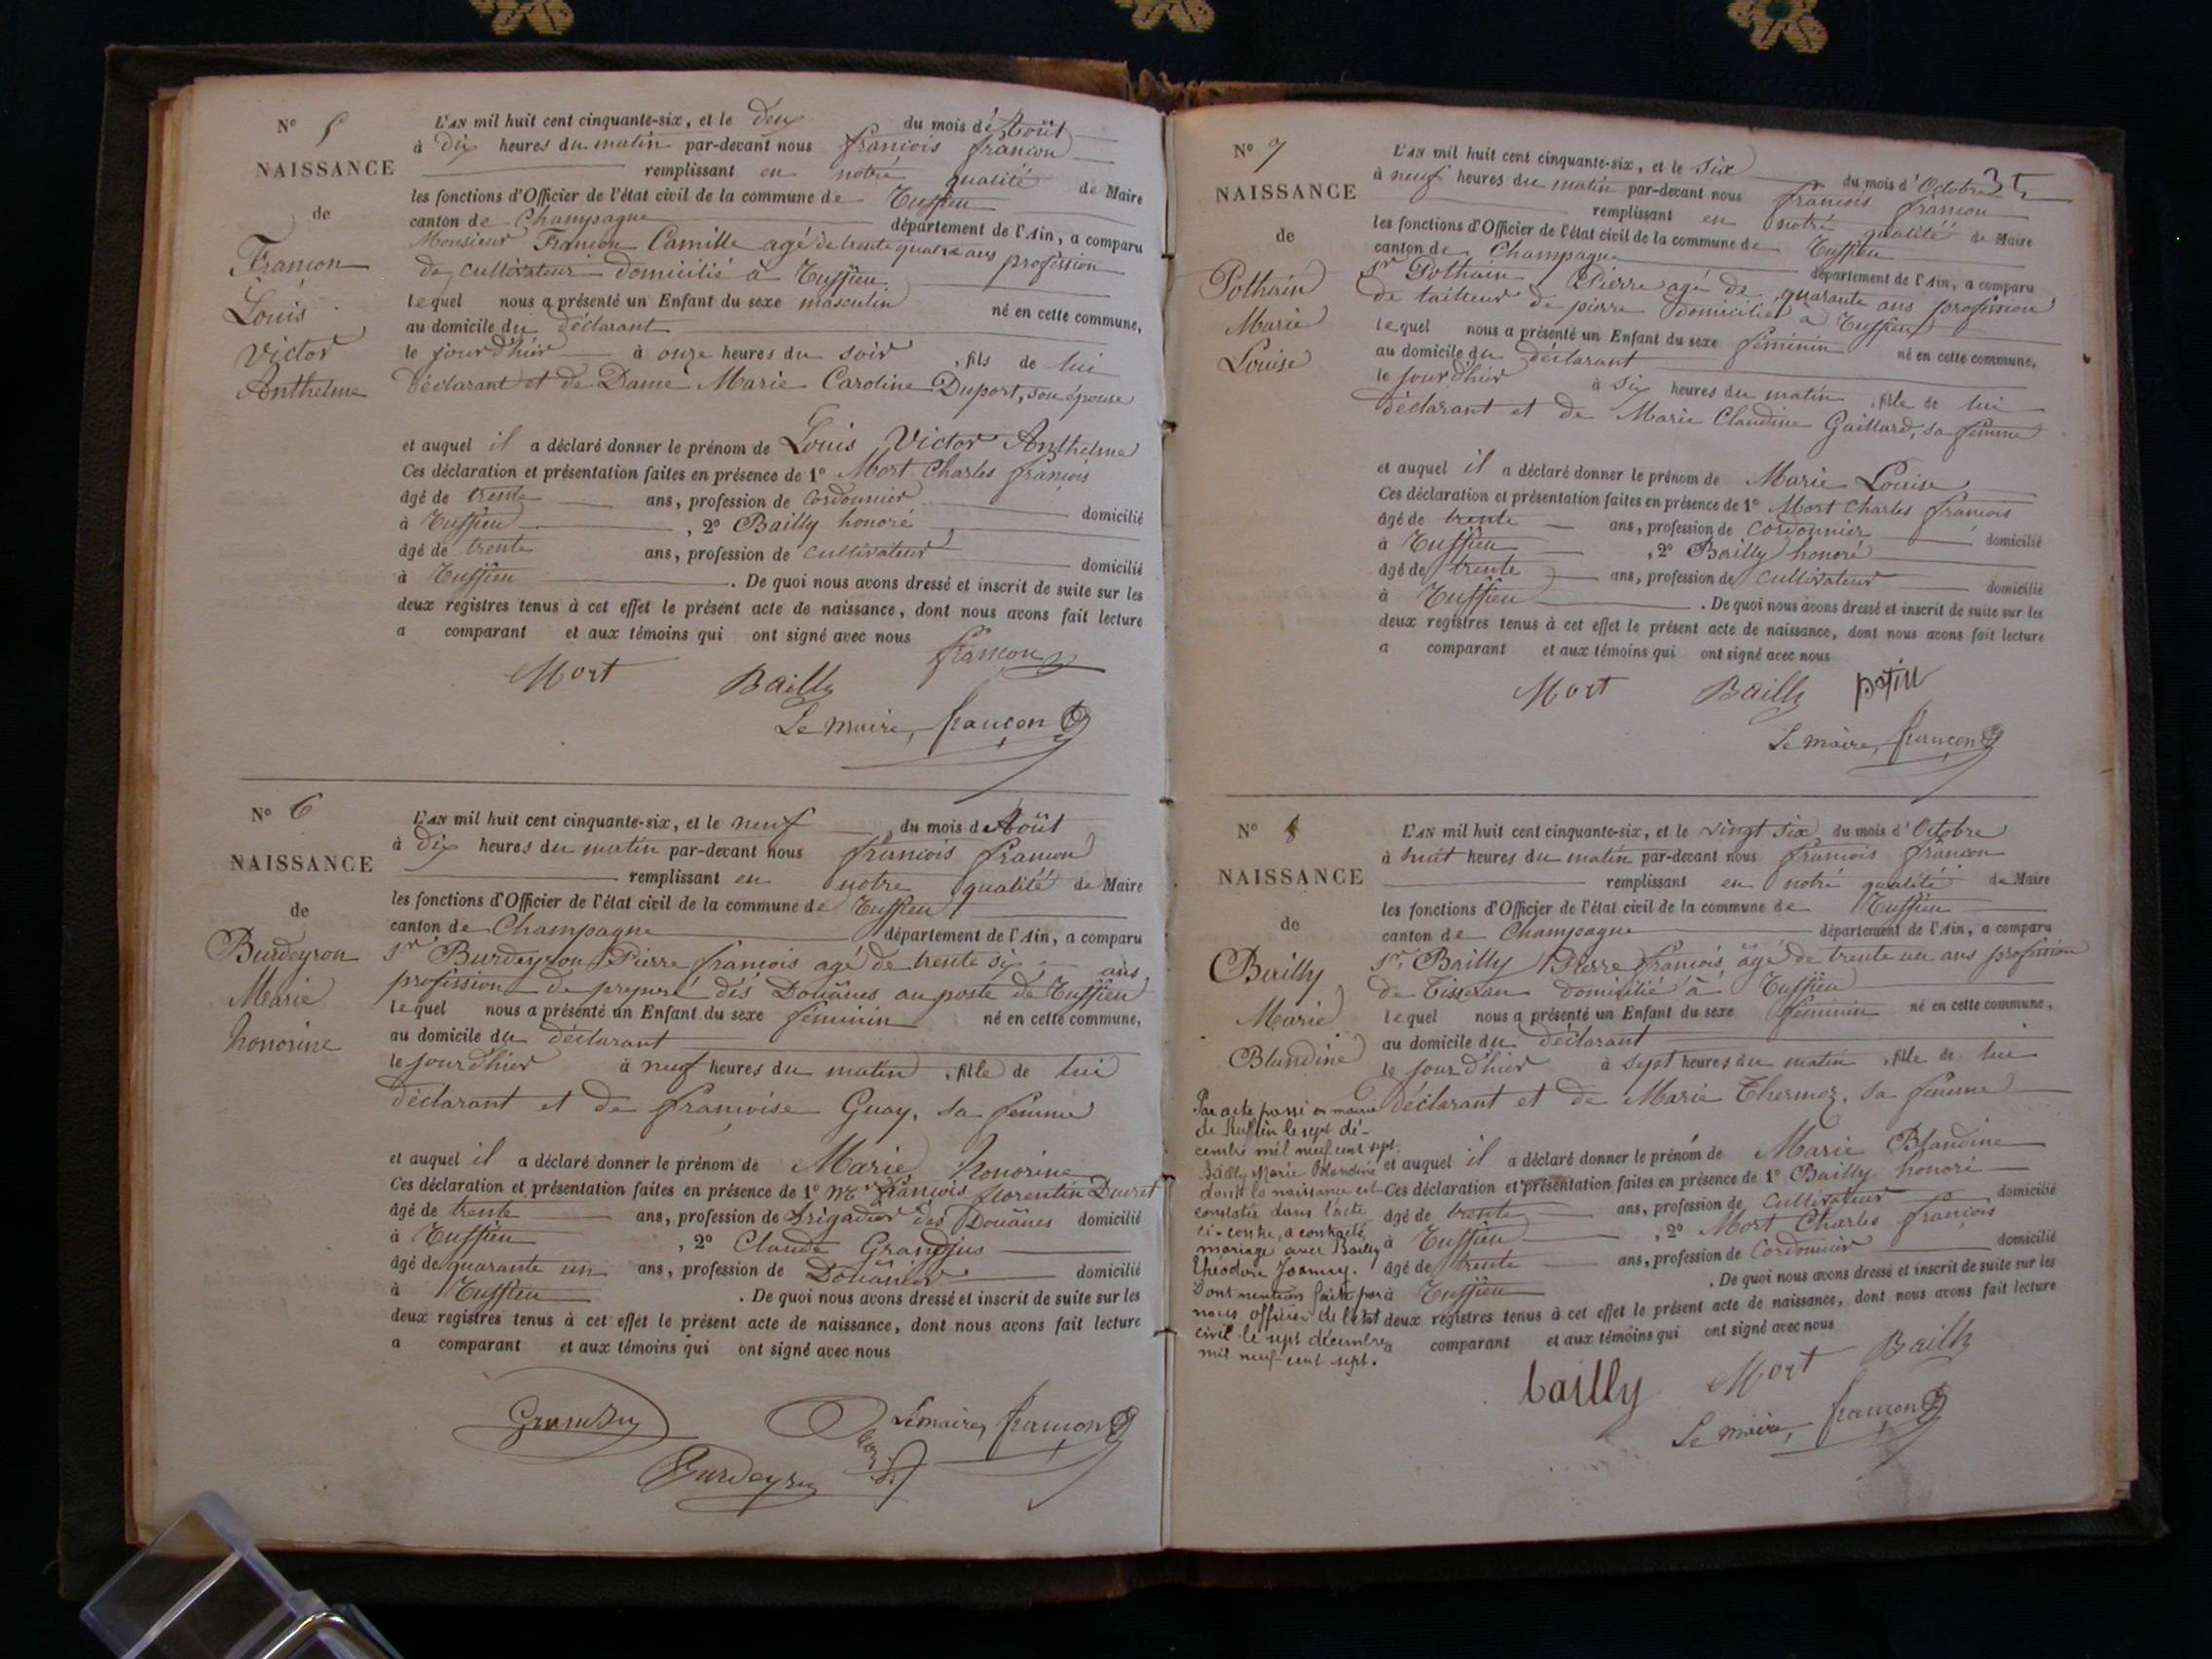 N° 5
NAISSANCE
de
Francon
Louis
Victor
Anthelme
L'AN mil huit cent cinquante-six, et le deux du mois d'Août
à dix heures du matin par-devant nous françois françon
remplissant en notre qualité de Maire
les fonctions d'Officier de l'état civil de la commune de Ruffieu
canton de Champagne département de l'Ain, a comparu
Monsieur Francon Camille agé de trente quatre ans profession
de cultivateur domicilié à Ruffieu
lequel nous a présenté un Enfant du sexe masculin né en cette commune,
au domicile du déclarant
le jour d'hier à onze heures du soir, fils de lui
déclarant et de Dame Marie Caroline Duport, son épouse
et auquel il a déclaré donner le prénom de Louis Victor Anthelme
Ces déclaration et présentation faites en présence de 1° Mort Charles françois
âgé de trente ans, profession de Cordonnier domicilié
à Ruffieu, 2° Bailly honoré
âgé de trente ans, profession de cultivateur domicilié
à Ruffieu. De quoi nous avons dressé et inscrit de suite sur les
deux registres tenus à cet effet le présent acte de naissance, dont nous avons fait lecture
a comparant et aux témoins qui ont signé avec nous
françon
Mort Bailly
Le maire, françon
N° 6
NAISSANCE
de
Burdeyron
Marie
honorine
L'AN mil huit cent cinquante-six, et le neuf du mois d'Août
à dix heures du matin par-devant nous françois françon
remplissant en notre qualité de Maire
les fonctions d'Officier de l'état civil de la commune de Ruffieu
canton de Champagne département de l'Ain, a comparu
Sr Burdeyron Pierre françois agé de trente six ans,
profession de préposé des Douânes au poste de Ruffieu
lequel nous a présenté un Enfant du sexe féminin né en cette commune,
au domicile du déclarant
le jour d'hier à neuf heures du matin, fille de lui
déclarant et de françoise Guay, sa femme
et auquel il a déclaré donner le prénom de Marie honorine
Ces déclaration et présentation faites en présence de 1° Mr françois florentin Ducret
âgé de trente ans, profession de Brigadier des Douânes domicilié
à Ruffieu, 2° Claude Grandjus
âgé de quarante un ans, profession de Douânier domicilié
à Ruffieu. De quoi nous avons dressé et inscrit de suite sur les
deux registres tenus à cet effet le présent acte de naissance, dont nous avons fait lecture
a comparant et aux témoins qui ont signé avec nous
Le maire, françon
Burdeyron
N° 7
NAISSANCE
de
Pothain
Marie
Louise
L'AN mil huit cent cinquante-six, et le six du mois d'Octobre
à neuf heures du matin par-devant nous françois françon
remplissant en notre qualité de Maire
les fonctions d'Officier de l'état civil de la commune de Ruffieu
canton de Champagne département de l'Ain, a comparu
Sr Pothain Pierre agé de quarante ans profession
de tailleur de pierre domicilié à Ruffieu
lequel nous a présenté un Enfant du sexe féminin né en cette commune,
au domicile du déclarant
le jour d'hier à six heures du matin, fille de lui
déclarant et de Marie Claudine Gaillard, sa femme
et auquel il a déclaré donner le prénom de Marie Louise
Ces déclaration et présentation faites en présence de 1° Mort Charles françois
âgé de trente ans, profession de Cordonnier domicilié
à Ruffieu, 2° Bailly honoré
âgé de trente ans, profession de cultivateur domicilié
à Ruffieu. De quoi nous avons dressé et inscrit de suite sur les
deux registres tenus à cet effet le présent acte de naissance, dont nous avons fait lecture
a comparant et aux témoins qui ont signé avec nous
Mort Bailly
Le maire, françon
N° 8
NAISSANCE
de
Bailly
Marie
Blandine
L'AN mil huit cent cinquante-six, et le vingt six du mois d'Octobre
à huit heures du matin par-devant nous françois françon
remplissant en notre qualité de Maire
les fonctions d'Officier de l'état civil de la commune de Ruffieu
canton de Champagne département de l'Ain, a comparu
Sr Bailly Pierre françois, âgé de trente un ans profession
de Tisseran domicilié à Ruffieu
lequel nous a présenté un Enfant du sexe féminin né en cette commune,
au domicile du déclarant
le jour d'hier à sept heures du matin, fille de lui
déclarant et de Marie Thermoz, sa femme
et auquel il a déclaré donner le prénom de Marie Blandine
Ces déclaration et présentation faites en présence de 1° Bailly honoré
âgé de trente ans, profession de Cultivateur domicilié
à Ruffieu, 2° Mort Charles françois
âgé de trente ans, profession de Cordonnier domicilié
à Ruffieu. De quoi nous avons dressé et inscrit de suite sur les
deux registres tenus à cet effet le présent acte de naissance, dont nous avons fait lecture
a comparant et aux témoins qui ont signé avec nous
bailly Mort Bailly
Le maire, françon
Par acte passé en mairie
de Ruffieu le sept dé-
cembre mil neuf cent sept.
Bailly Marie Blandine
dont la naissance est
constatée dans l'acte
ci-contre, a contracté
mariage avec Bailly
Théodore Joanny.
Dont mention faite par
nous officier de l'état
civil le sept décembre
mil neuf-cent sept.